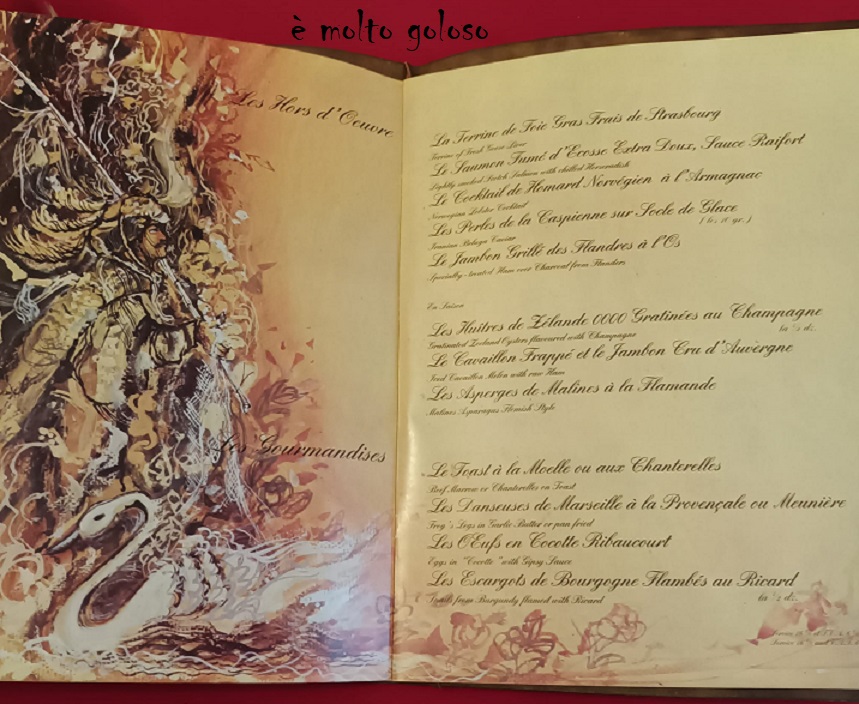 è molto goloso
Les Hors d'Oeuvre
La Terrine de Foie Gras Frais de Strasbourg
Terrine of Fresh Goose Liver
Le Saumon Fumé d'Ecosse Extra Doux, Sauce Raifort
Lightly smoked Scotch Salmon with chilled Horseradish
Le Cocktail de Homard Norvégien à l'Armagnac
Norwegian Lobster Cocktail
Les Perles de la Caspienne sur Socle de Glace
Iranian Beluga Caviar
Le Jambon Grillé des Flandres à l'Os
Specially roasted Ham over Charcoal from Flanders
En Saison
Les Huîtres de Zélande 0000 Gratinées au Champagne
Gratinated Zeeland Oysters flavoured with Champagne la ½ dz.
Le Cavaillon Frappé et le Jambon Cru d'Auvergne
Iced Cavaillon Melon with raw Ham
Les Asperges de Malines à la Flamande
Malines Asparagus Flemish Style
Les Gourmandises
Le Toast à la Moelle ou aux Chanterelles
Beef Marrow or Chanterelles on Toast
Les Danseuses de Marseille à la Provençale ou Meunière
Frog's Legs in Garlic Butter or pan fried
Les OEufs en Cocotte Ribaucourt
Eggs in "Cocotte" with Gipsy Sauce
Les Escargots de Bourgogne Flambés au Ricard
Snails from Burgundy flamed with Ricard la ½ dz.